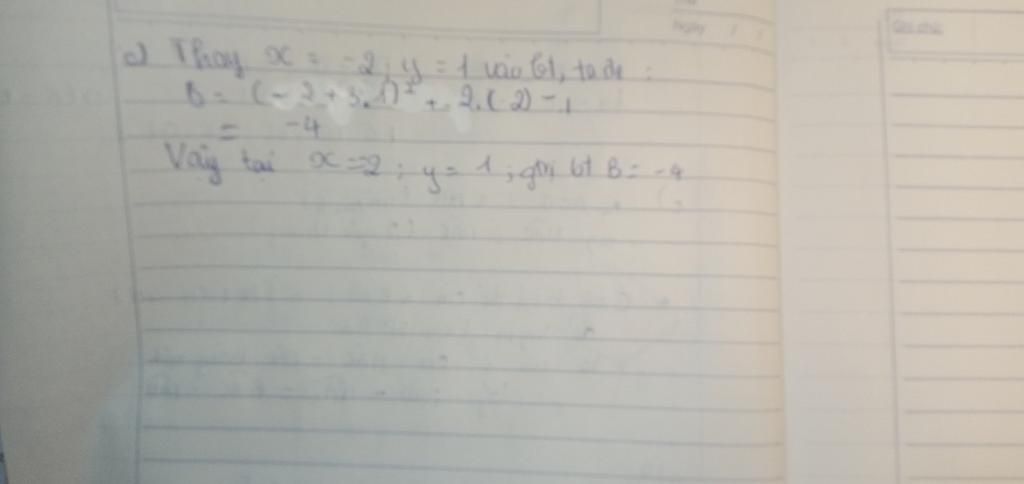 Ngày / /
Ghi chú
c) Thay x = -2; y = 1 vào bt, ta đc :
B = (-2 + 3.1)² + 2.(-2) - 1
= -4
Vậy tại x = -2 ; y = 1 ; gtrị bt B = -4